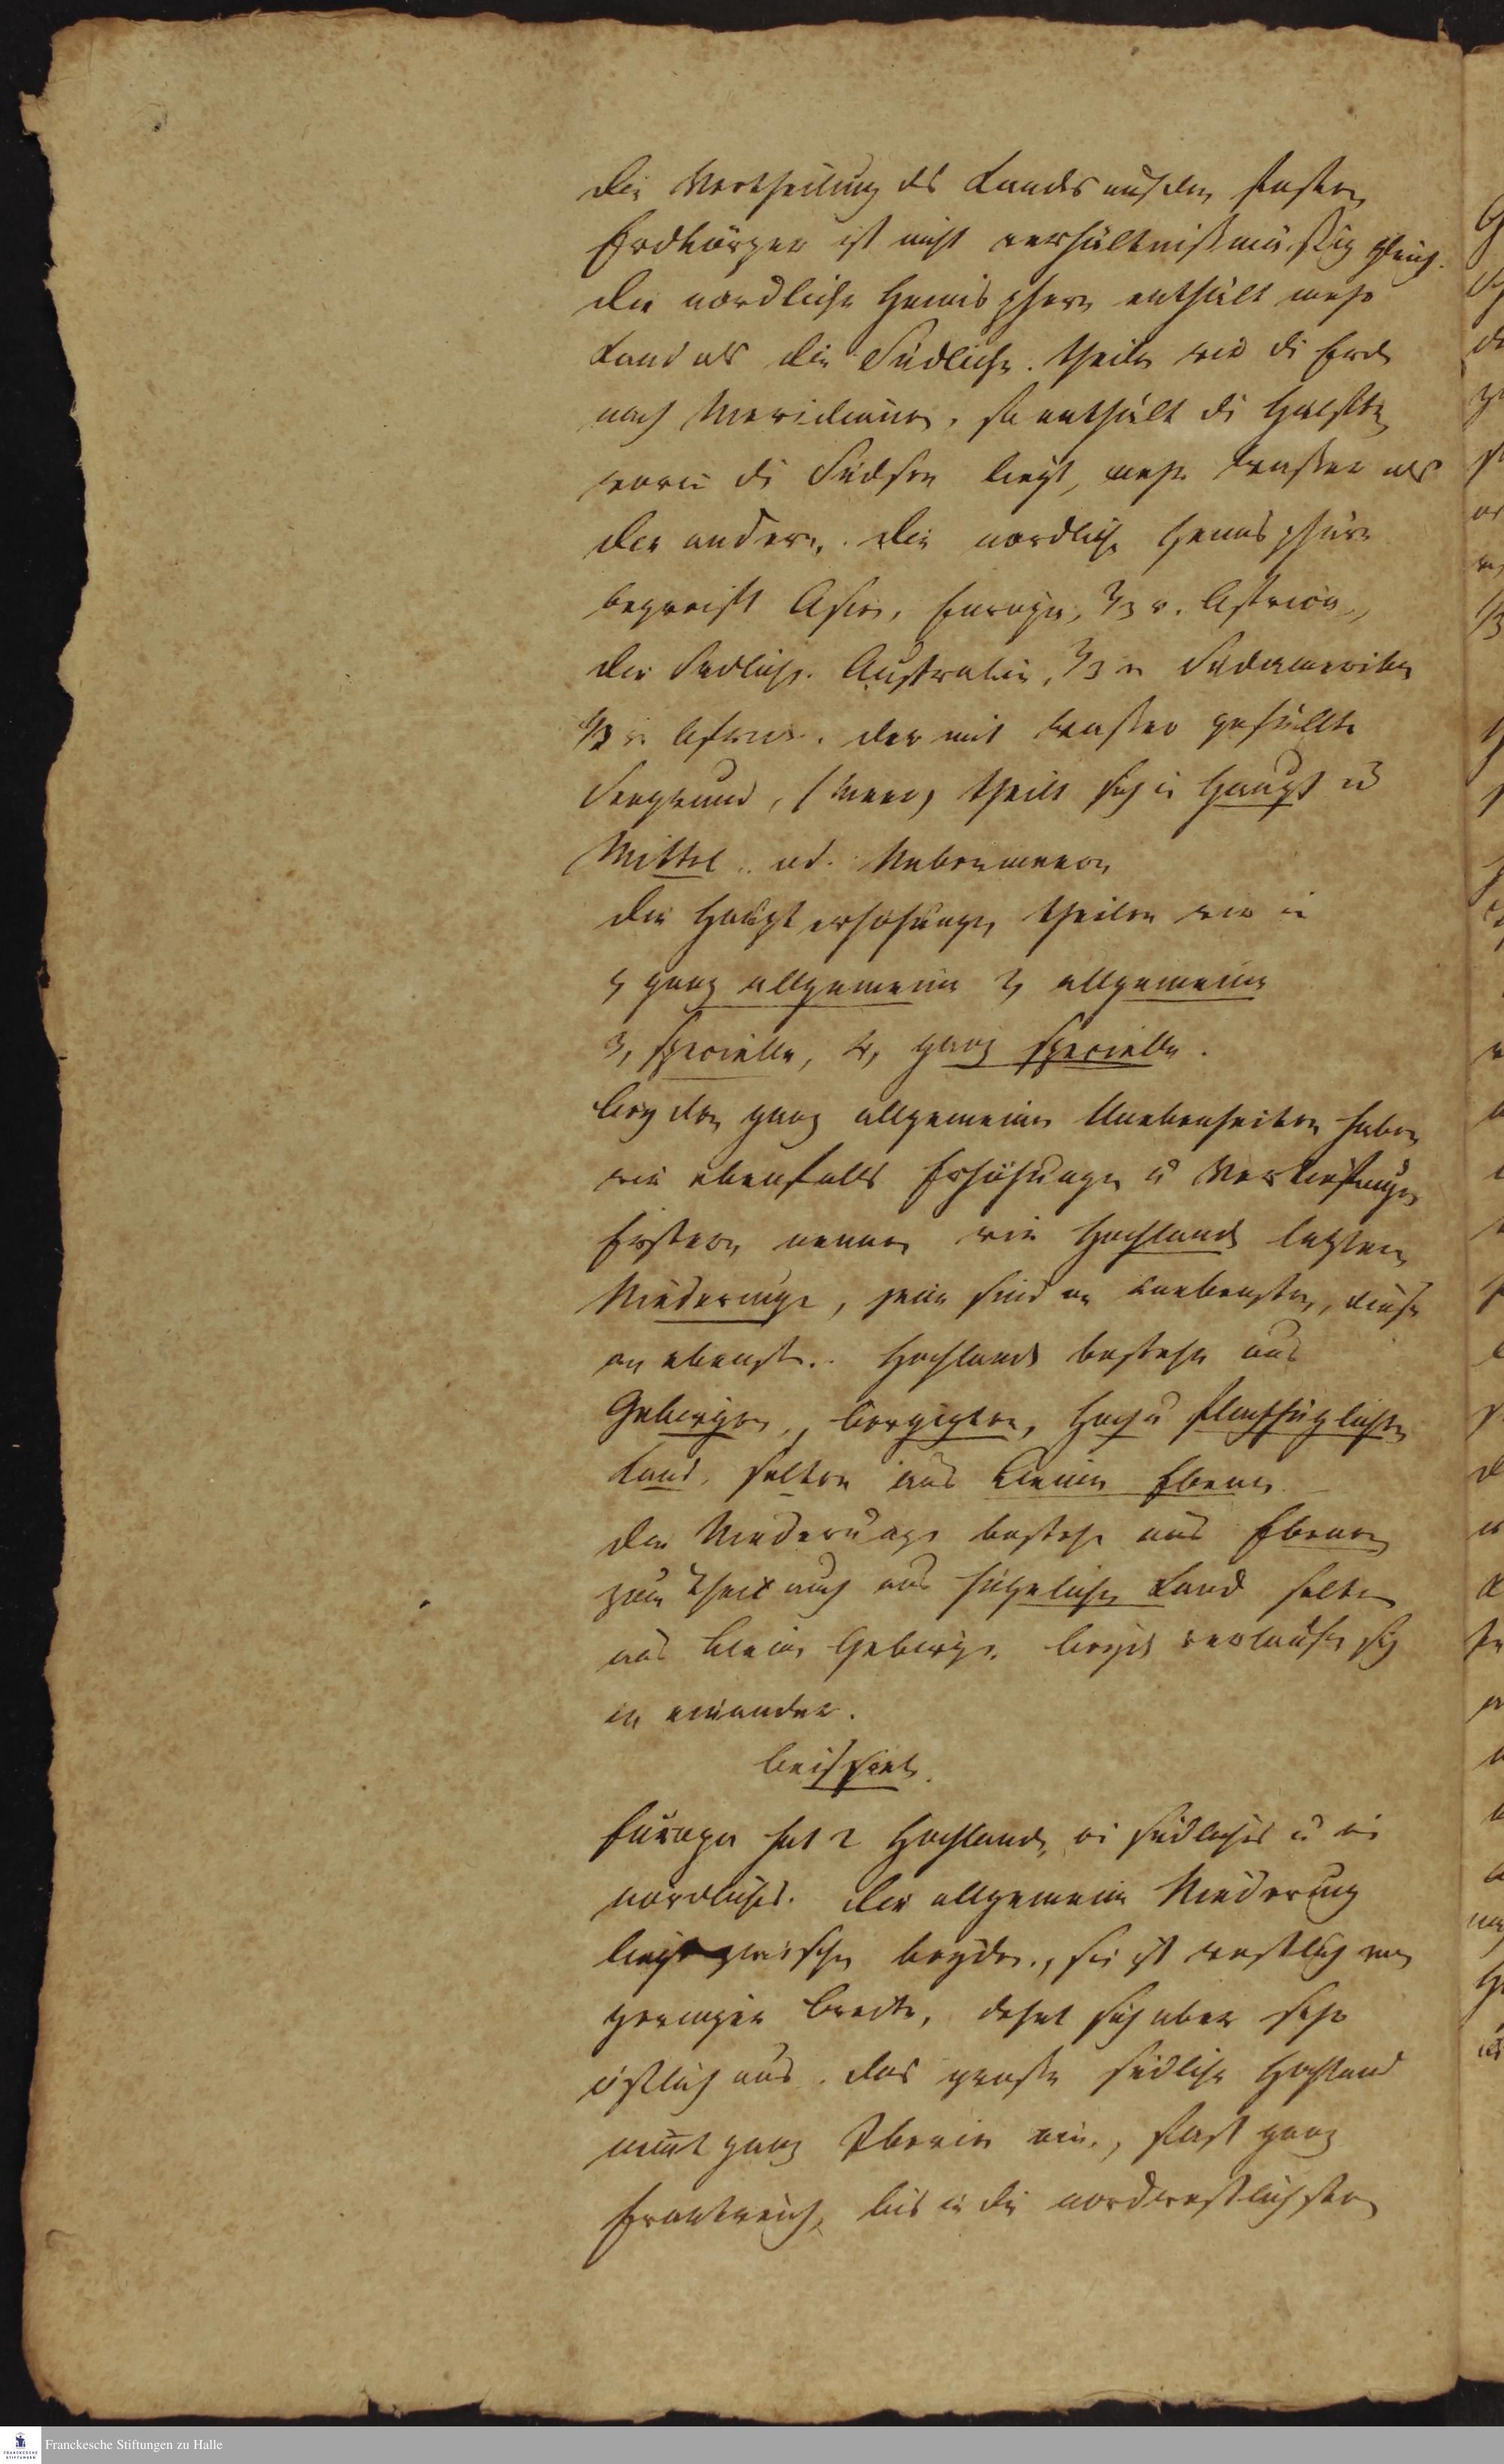 Die Vertheilung des Landes auf dem festen
Erdkörper ist nicht verhältnißmäßig gleich.
Die nördliche Hemisphere enthält mehr
Land als die Südliche. theilen wir die Erde
nach Meridianen, so enthält die Hälfte
worin die Südsee liegt, mehr Wasser als
die andere. Die nordliche Hemisphäre
begreift Asien, Europa, 2/3 v. Africa,
die Südliche. Australien, 2/3 v Südamerika
1/3 v Africa. der mit Wasser gefüllte
Seegrund, (Meer) theilt sich in Haupt u
Mittel. od. Nebenmeere
Die Haupterhöhungen theilen wir in
1, ganz allgemeine 2, allgemeine
3, specielle, 4, ganz specielle.
Bey den ganz allgemeinen Unebenheiten haben
wir ebenfalls Erhöhungen u Vertiefungen
Erstere nennen wir Hochlande letztere
Niederunge, jene sind am unebensten, diese
am ebenst. Hochlande bestehn aus
Gebirgen, bergigten, Hoch u flachhüglichten
Land, selten aus kleinen Ebenen
Die Niederunge bestehn aus Ebenen
zum Theil auch aus hügelichen Land selten
aus kleine Gebirge. beyde verlaufen sich
in einander.
Beispiel.
Europa hat 2 Hochlande, ein südliches u ein
nördliches. Die allgemeine Niederung
liegt zwischen beyden, sie ist westlich von
geringer Breite, dehnt sich aber sehr
östlich aus. das große südliche Hochland
nimt ganz Iberien ein, fast ganz
Frankreich, bis in die nordwestlichsten
Franckesche Stiftungen zu Halle